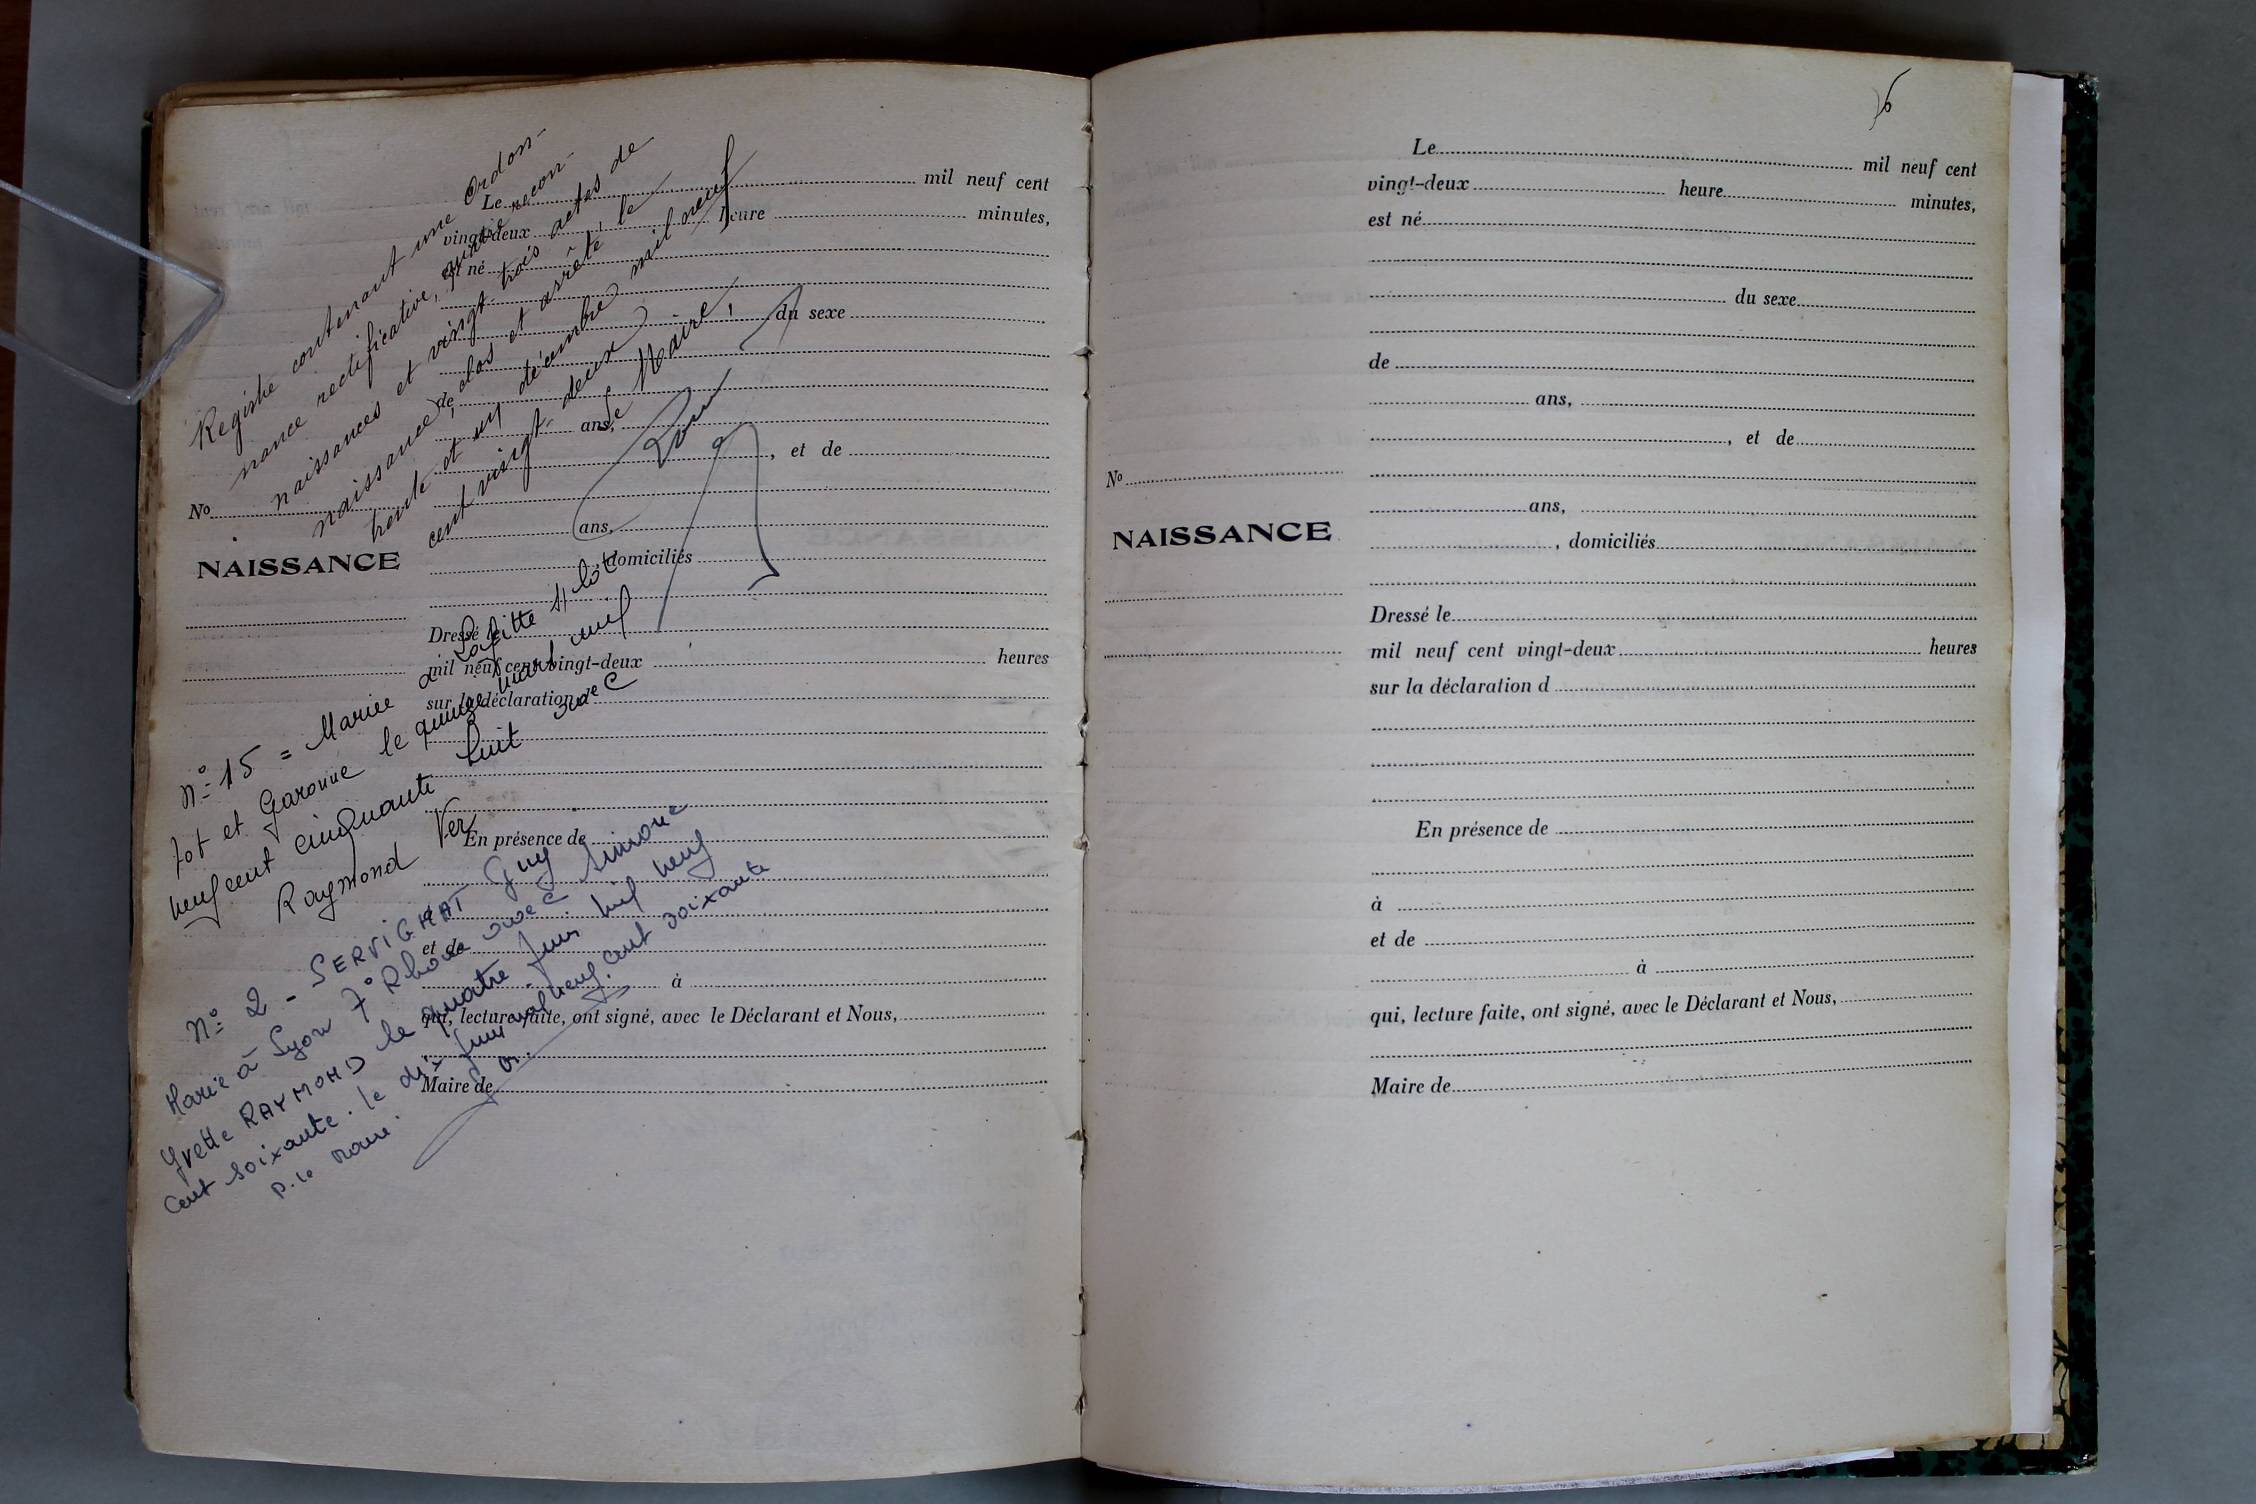 Registre contenant une Ordon-
nance rectificative, quinze recon-
naissances et vingt-trois actes de
naissance, clos et arrêté le
trente et un décembre mil neuf
cent vingt-deux
Le Maire,
n° 15 = Mariée à Lafitte s/ lot
lot et Garonne le quinze mars mil
neuf cent cinquante huit avec
Raymond Ver
n° 2 - SERVIGNAT Guy
Marié à Lyon 7° Rhône avec Simone
Yvette RAYMOND le quatre juin mil neuf
cent soixante. le dix juin mil neuf cent soixante
P. le maire.
Le mil neuf cent
vingt-deux heure minutes,
est né
du sexe
de
ans,
, et de
No
ans,
NAISSANCE
, domiciliés
Dressé le
mil neuf cent vingt-deux heures
sur la déclaration de
En présence de
à
et de
à
qui, lecture faite, ont signé, avec le Déclarant et Nous,
Maire de
Le mil neuf cent
vingt-deux heure minutes,
est né
du sexe
de
ans,
, et de
No
ans,
NAISSANCE
, domiciliés
Dressé le
mil neuf cent vingt-deux heures
sur la déclaration d
En présence de
à
et de
à
qui, lecture faite, ont signé, avec le Déclarant et Nous,
Maire de